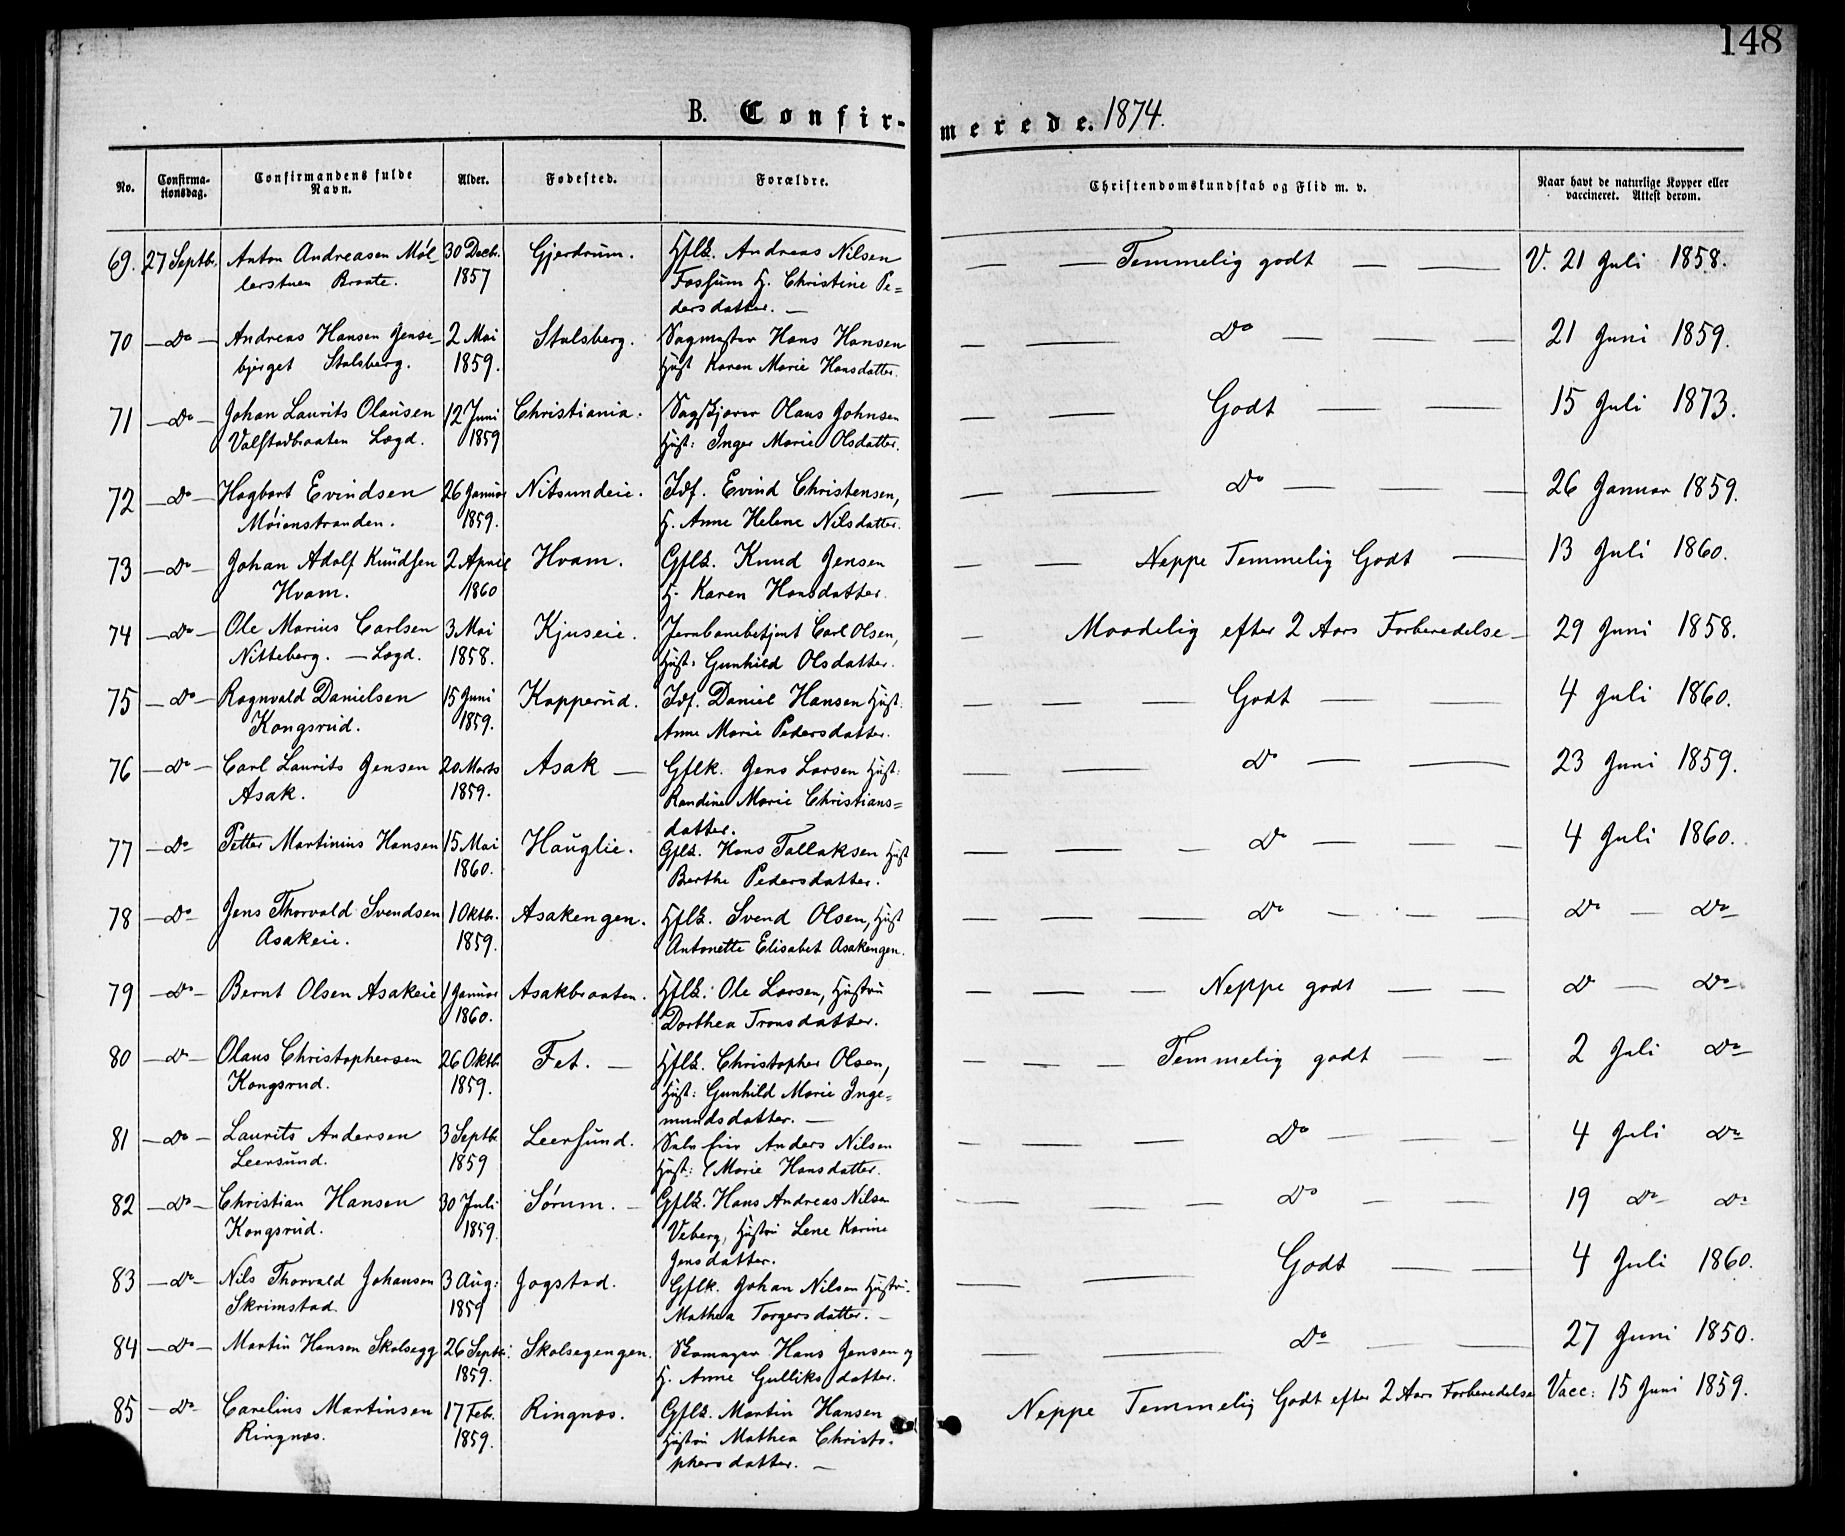 148
B. Confirmerede. 1874.
No. Confirmationsdag. Confirmandens fulde Navn. Alder. Fødested. Forældre. Christendomskundskab og Flid m. v. Naar havt de naturlige Kopper eller vaccineret. Attest derom.
69. 27 Septbr. Anton Andreasen Møl- 30 Decbr. Gjerdrum. Hflk. Andreas Nilsen — — Temmelig godt — — V. 21 Juli 1858.
lerstuen Braate. 1857 Fossum H. Christine Pe=
dersdatter. —
70 — Do — Andreas Hansen Jense- 2 Mai Stalsberg. Sagmester Hans Hansen — — Do — — — 21 Juni 1859.
bjerget Stalsberg. 1859. Hust Karen Marie Hansdatter.
71 — Do — Johan Laurits Olausen 12 Juni Christiania. Sagskjærer Olaus Johnsen — — Godt — — 15 Juli 1873.
Valstadbraaten Logd. 1859 Hust: Inger Marie Olsdatter.
72 — Do — Hagbart Evindsen 26 Januar Nitsundeie. Idf. Evind Christensen, — — Do — — — 26 Januar 1859.
Møienstranden. 1859. H. Anne Helene Nilsdatter.
73 — Do — Johan Adolf Knudsen 2 April Hvam. Gflk. Knud Jensen — — Neppe Temmelig Godt — 13 Juli 1860.
Hvam. 1860 H. Karen Hansdatter.
74 — Do — Ole Marius Carlsen 3 Mai Kjuseie. Jernbanebetjent Carl Olsen, — Maadelig efter 2 Aars Forberedelse — 29 Juni 1858.
Nitteberg. — Logd. 1858. Hust: Gunhild Olsdatter.
75 — Do — Ragnvald Danielsen 15 Juni Kopperud. Idf. Daniel Hansen Hust. — — — Godt — — 4 Juli 1860.
Kongsrud. 1859. Anne Marie Pedersdatter.
76 — Do — Carl Laurits Jensen 20 Marts Asak — Gflk. Jens Larsen Hust: — — Do — — 23 Juni 1859.
Asak. 1859. Randine Marie Christians=
datter.
77 — Do — Petter Martinius Hansen 15 Mai Hauglie. Gflk. Hans Tallaksen Hust — — — Do — — — 4 Juli 1860.
1860. Berthe Pedersdatter.
78 — Do — Jens Thorvald Svendsen 1 Oktbr. Asakengen. Hflk. Svend Olsen, Hust — — — Do — — — Do — Do —
Asakeie. 1859. Antonette Elisabet Asakengen.
79 — Do — Bernt Olsen Asakeie 1 Januar Asakbraaten. Hflk. Ole Larsen, Hustru — — — Neppe godt — — Do — Do —
1860. Dorthea Tronsdatter.
80 — Do — Olaus Christophersen 26 Oktbr Fet. — Hflk. Christopher Olsen, — — — Temmelig godt — — 2 Juli Do —
Kongsrud. 1859. Hust: Gunhild Marie Inge=
mundsdatter. —
81 — Do — Laurits Andersen 3 Septbr Leersund. Anders Nilsen — — — Do — — — 4 Juli Do —
Leersund. 1859 Hust: Marie Hansdatter.
82 — Do — Christian Hansen 30 Juli Sørum. — Gflk. Hans Andreas Nilsen — — — Do — — 19 Do — Do
Kongsrud. 1859. Veberg, Hustru Lene Karine
Jensdatter.
83 — Do — Nils Thorvald Johansen 3 Aug: Jogstad. Gflk. Johan Nilsen Hustru. — — Godt — — 4 Juli 1860.
Skrimstad 1859 Mathea Torgersdatter. —
84 — Do — Martin Hansen Skolsegg 26 Septbr. Skolsegengen. Skomager Hans Jensen og — — Do — — 27 Juni 1850.
1859. H. Anne Gulliksdatter.
85 — Do — Carelius Martinsen 17 Feb. Ringnos. Gflk. Martin Hansen Neppe Temmelig Godt efter 2 Aars Forberedelse Vacc: 15 Juni 1859.
Ringnos. 1859. Hustru Mathea Christo-
phersdatter. —